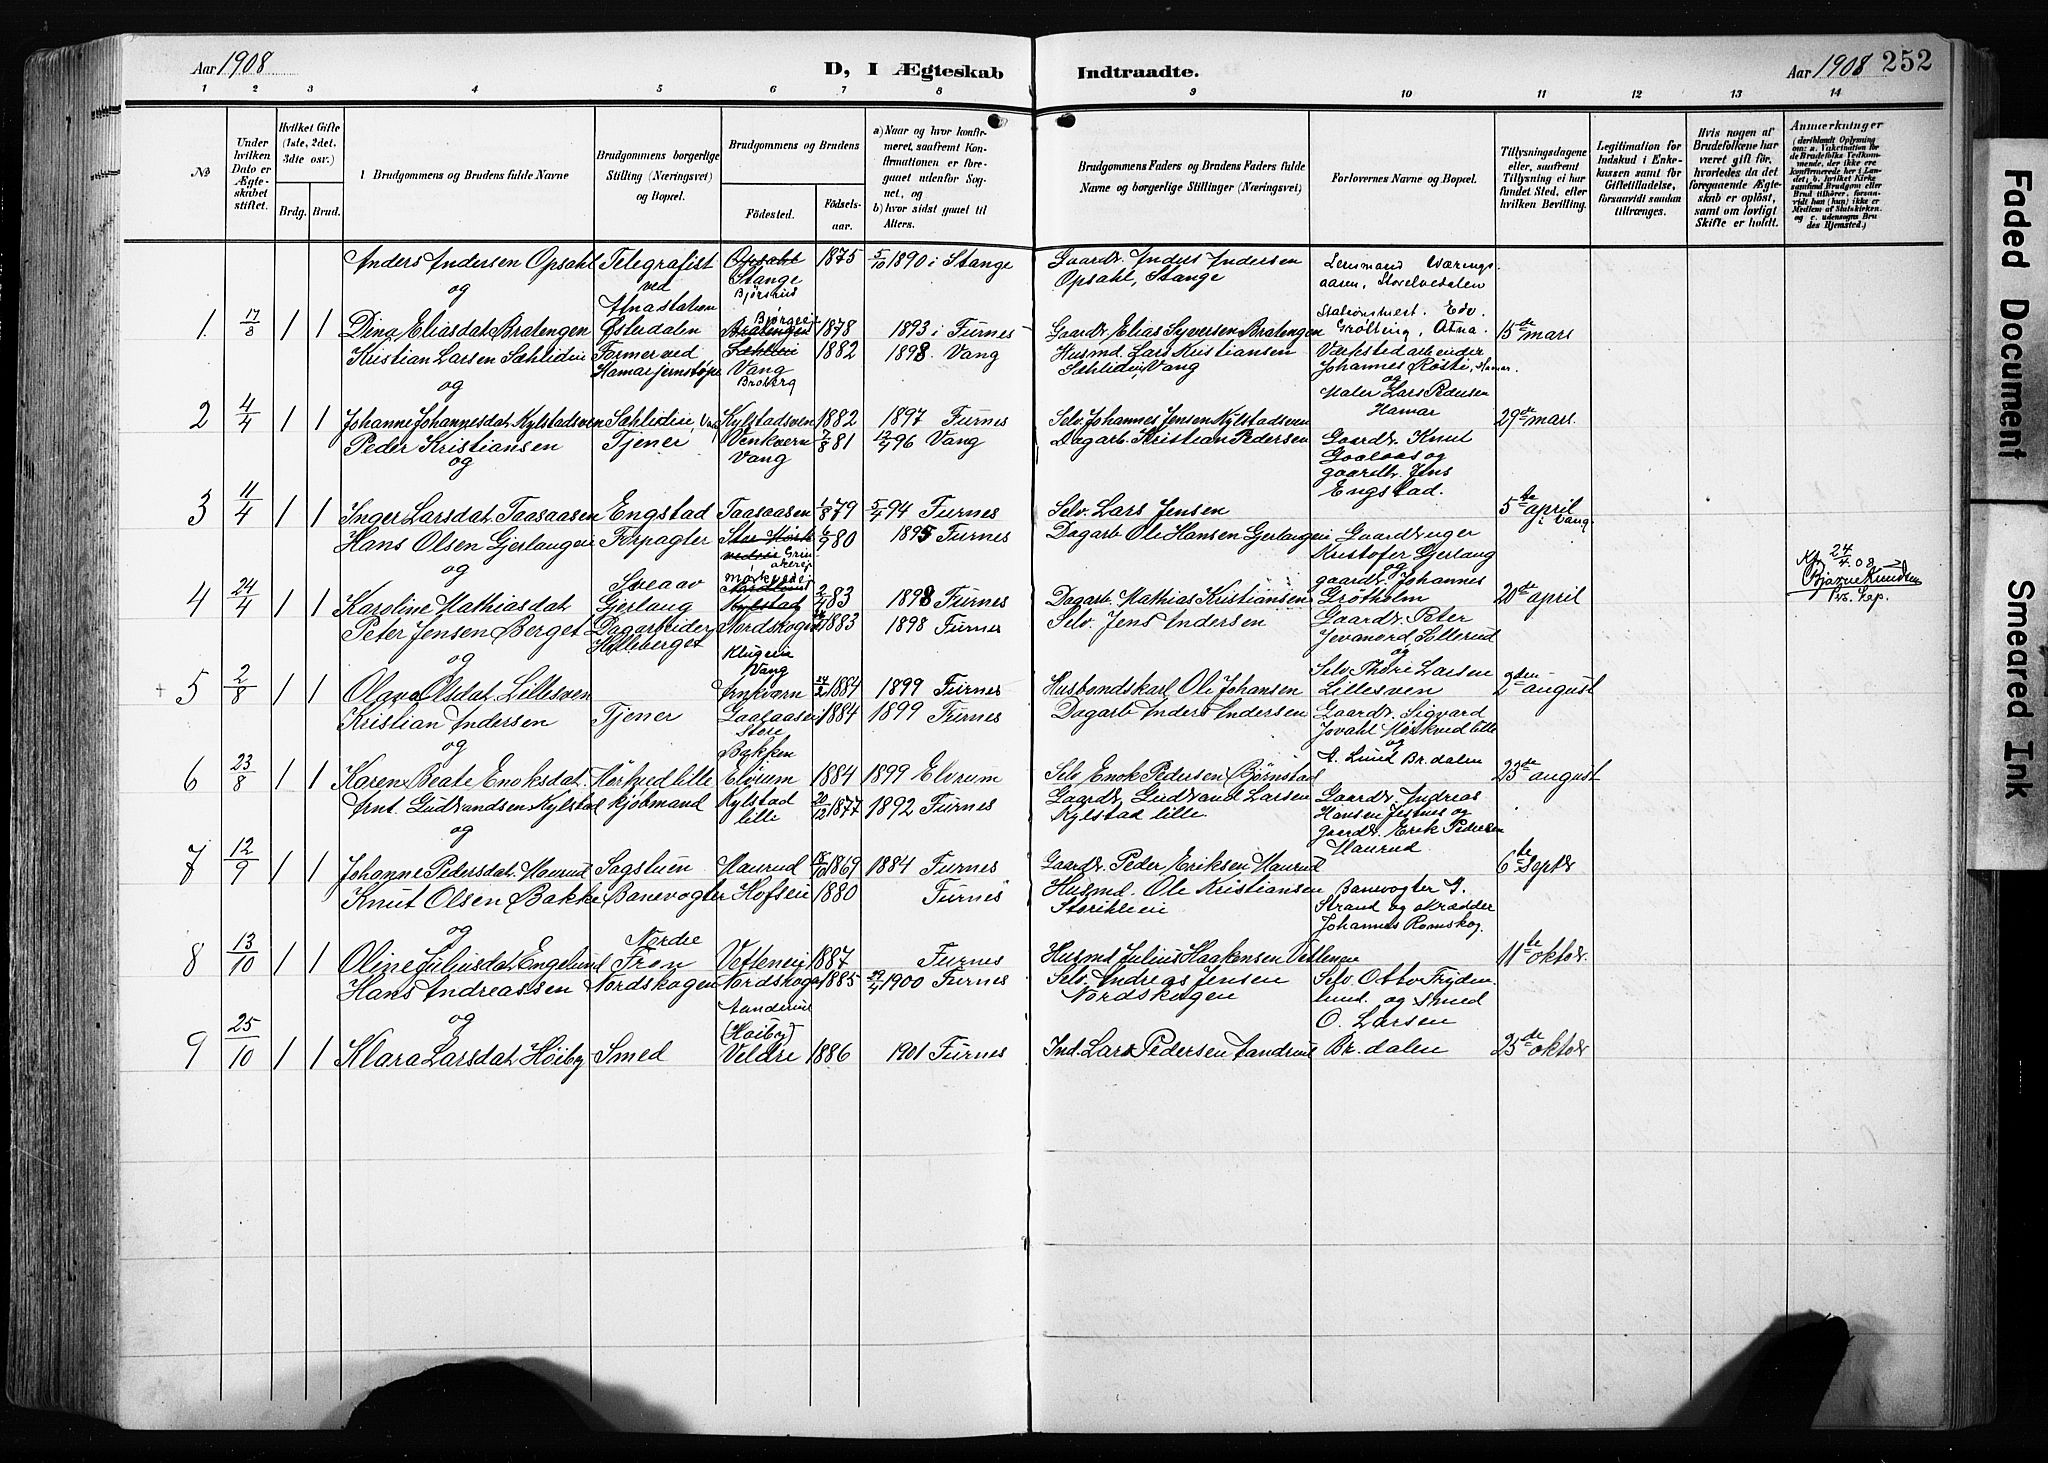 Aar 1908
D, I Ægteskab
Indtraadte.
Aar 1908
252
1 2 3 4 5 6 7 8 9 10 11 12 13 14
№
Under hvilken Dato er Ægteskabet stiftet.
Hvilket Gifte (1ste, 2det. 3dte osv.)
Brdg. Brud.
1 Brudgommens og Brudens fulde Navne
Brudgommens borgerlige Stilling (Næringsvei) og Bopæl.
Brudgommens og Brudens
Fødested.
Fødselsaar.
a) Naar og hvor konfirmeret, saafremt Konfirmationen er foregaaet udenfor Sognet, og
b) hvor sidst gaaet til Alters.
Brudgommens Faders og Brudens Faders fulde Navne og borgerlige Stillinger (Næringsvei)
Forlovernes Navne og Bopæl.
Tillysningsdagene eller, saafremt Tillysning ei har fundet Sted, efter hvilken Bevilling.
Legitimation for Indskud i Enkekassen samt for Giftetilladelse, forsaavidt saadan tiltrænges.
Hvis nogen af Brudefolkene har været gift før, hvorledes da det foregaaende Ægteskab er opløst, samt om lovligt Skifte er holdt.
Anmærkninger
(deriblandt Oplysning om: a. Vakcination for de Brudefolks Vedkommende, der ikke ere konfirmerede her i Landet; b. hvilket Kirkesamfund Brudgom eller Brud tilhører, forsaavidt han (hun) ikke er Medlem af Statskirken, og c. udensogns Brudes Hjemsted.)
Anders Andersen Opsahl Telegrafist Opsahl 1875 5/10 1890 i Stange Gaardbr. Anders Andersen Lensmand Wærings-
og ved Stange Opsahl, Stange aasen, Storelvedalen
Atnastation Bjørsrud Stationsmest. Edv.
1 17/3 1 1 Dina Eliasdat. Bratengen Østerdalen Bratengen 1878 1893 i Furnes Gaardbr. Elias Syversen Bratengen Grøtting, Atna. 15de mars
Kristian Larsen Sæhlideie Former ved Sæhlieie 1882 1898 Vang Husmd. Lars Kristiansen Værkstedarbeider
og Hamar jernstøpe Vang Sæhlideie, Vang Johannes Røste, Hamar.
og
Maler Lars Pedersen
2 4/4 1 1 Johanne Johannesdat. Kylstadsven Sæhlideie, Kylstadsven 1882 1897 Furnes Selv. Johannes Jensen Kylstadsven Hamar 29de mars.
Peder Kristiansen Tjener Venkvern 7/8 81 12/4 96 Vang Dagarb. Kristian Pedersen Gaardbr. Knut
og Vang Gaalaas og
gaardbr. Jens
3 11/4 1 1 Inger Larsdat. Taasaasen Engstad Taasaasen 1/8 79 5/4 94 Furnes Selv. Lars Jensen Engstad. 5te april
i Vang.
Hans Olsen Gjerlangeie Forpagter 2/9 80 1895 Furnes Dagarb. Ole Hansen Gjerlangeie Gaardbruger
og Kristofer Gjerlang
og
Sveaav gaardbr. Johannes
4 24/4 1 1 Karoline Mathiasdat. Gjerlang Kylstad 2/4 83 1898 Furnes Dagarb. Mathias Kristiansen Grøtholm 20de april
24/4.08
Bjarne Knudsen
res. kap.
Peter Jensen Berget Dagarbeider Nordskogen 1883 1898 Furnes Selv. Jens Andersen Gaardbr. Peter
og Holleberget Jevanord Sollerud
Klugeie og
Vang Selv. Thore Larsen
5 2/8 1 1 Olava Olsdat. Lillesven Arnkværn 24/2 1884 1899 Furnes Husbondskarl Ole Johansen Lillesven 2den august
Kristian Andersen Tjener Gaalaase 1884 1899 Furnes Dagarb. Anders Andersen Gaardbr. Sigvard
og store Jovahl Mørkved lille
Bakken og
6 23/8 1 1 Karen Beate Enoksdat. Mørkved lille Elvrum 1884 1899 Elvrum Selv. Enok Pedersen Bjørnstad A. Lund Br.dalen 23de august
Arnt. Gudbrandsen Kylstad Kjøbmand Kylstad 20/12 1877 1892 Furnes Gaardbr. Gudbrand Larsen Gaardbr. Andreas
og lille Kylstad lille Hansen Jestnes og
gaardbr. Erik Pedersen
7 12/9 1 1 Johanne Pedersdat. Haurud Sagstuen Haurud 1869 1884 Furnes Gaardbr. Peder Eriksen Haurud Haurud 6te septbr
Knut Olsen Bakke Banevogter Hofseie 1880 Furnes Husmd. Ole Kristiansen Banevogter
og Storihleie Strand og skrædder
Nordre Johannes Romskog.
8 13/10 1 1 Oline Juliusdat. Engelund Fron Vetteneie 1887 Furnes Husmd. Julius Haakensen Vetteneie 11te oktbr.
Hans Andreassen Nordskogen Nordskogen 1885 29/4 1900 Furnes Selv. Andreas Jensen Selv. Otto Fryden-
og Aanderud Nordskogen lund og smed
(Høiby) O. Larsen
9 25/10 1 1 Klara Larsdat. Høiby Smed Veldre 1886 1901 Furnes Ind. Lars Pedersen Aandrud Br.dalen 25de oktbr
Faded Document
Smeared Ink